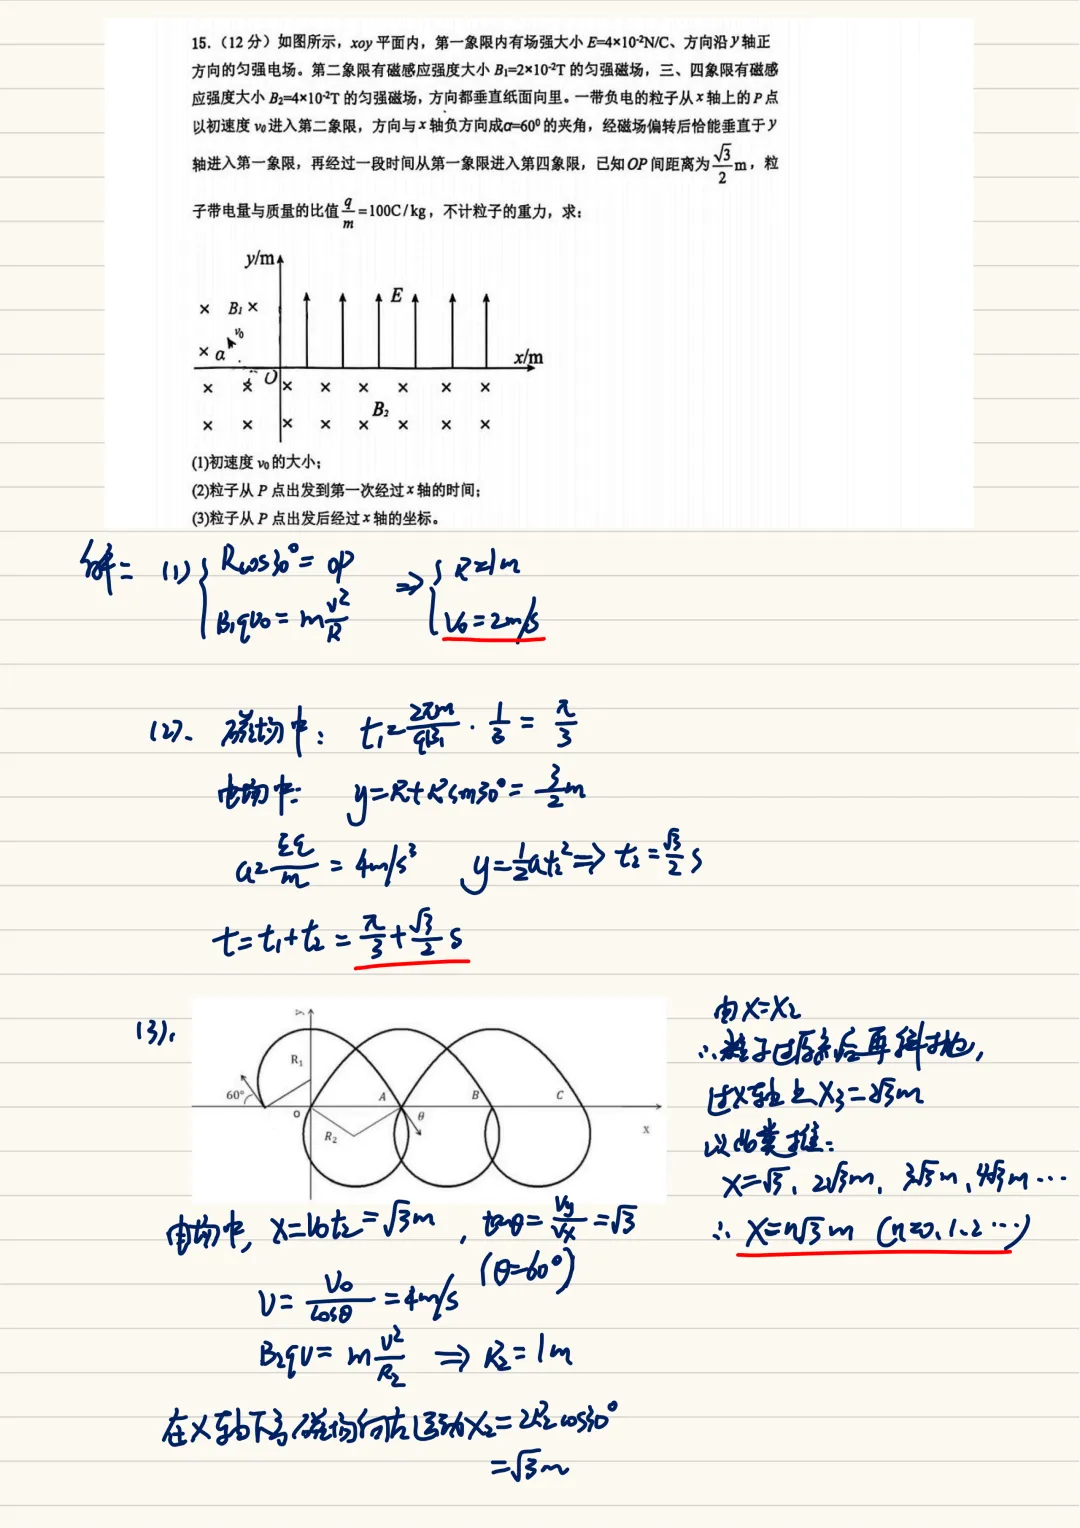 15.（12 分）如图所示，xoy 平面内，第一象限内有场强大小 E=4×10⁻²N/C、方向沿 y 轴正
方向的匀强电场。第二象限有磁感应强度大小 B₁=2×10⁻²T 的匀强磁场，三、四象限有磁感
应强度大小 B₂=4×10⁻²T 的匀强磁场，方向都垂直纸面向里。一带负电的粒子从 x 轴上的 P 点
以初速度 v₀ 进入第二象限，方向与 x 轴负方向成α=60⁰ 的夹角，经磁场偏转后恰能垂直于 y
轴进入第一象限，再经过一段时间从第一象限进入第四象限，已知 OP 间距离为 √3/2 m，粒
子带电量与质量的比值 q/m =100C/kg，不计粒子的重力，求：
y/m
× B₁ × E
v₀
× α x/m
O
× × × × × × × ×
B₂
× × × × × × × ×
(1)初速度 v₀ 的大小；
(2)粒子从 P 点出发到第一次经过 x 轴的时间；
(3)粒子从 P 点出发后经过 x 轴的坐标。
解： (1) { Rcos30°= OP ⇒ { R=1m
B₁qv₀ = m v²/R V₀ = 2m/s
(2)、 磁场中： t₁= 2πm/qB₁ · 1/3 = π/3
电场中： y=R+Rsin30°= 3/2 m
a= Eq/m = 4m/s³ y= 1/2 at₂² ⇒ t₂ = √3/2 s
t=t₁+t₂ = π/3 + √3/2 s
(3)、
y
R₁
60°
O A B C
θ
R₂
x
电场中, x=V₀t₂=√3m , tanθ= Vy/Vx =√3
(θ=60°)
V= V₀/cosθ =4m/s
B₂qV= m V²/R₂ ⇒ R₂=1m
在X轴下方磁场向右运动X₂=2R₂cos30°
=√3m
由X=X₂
∴粒子过原点后再斜抛,
过X轴上X₃=2√3m
以此类推：
X=√3、2√3m、3√3m、4√3m…
∴ X=n√3m (n=0、1、2…)